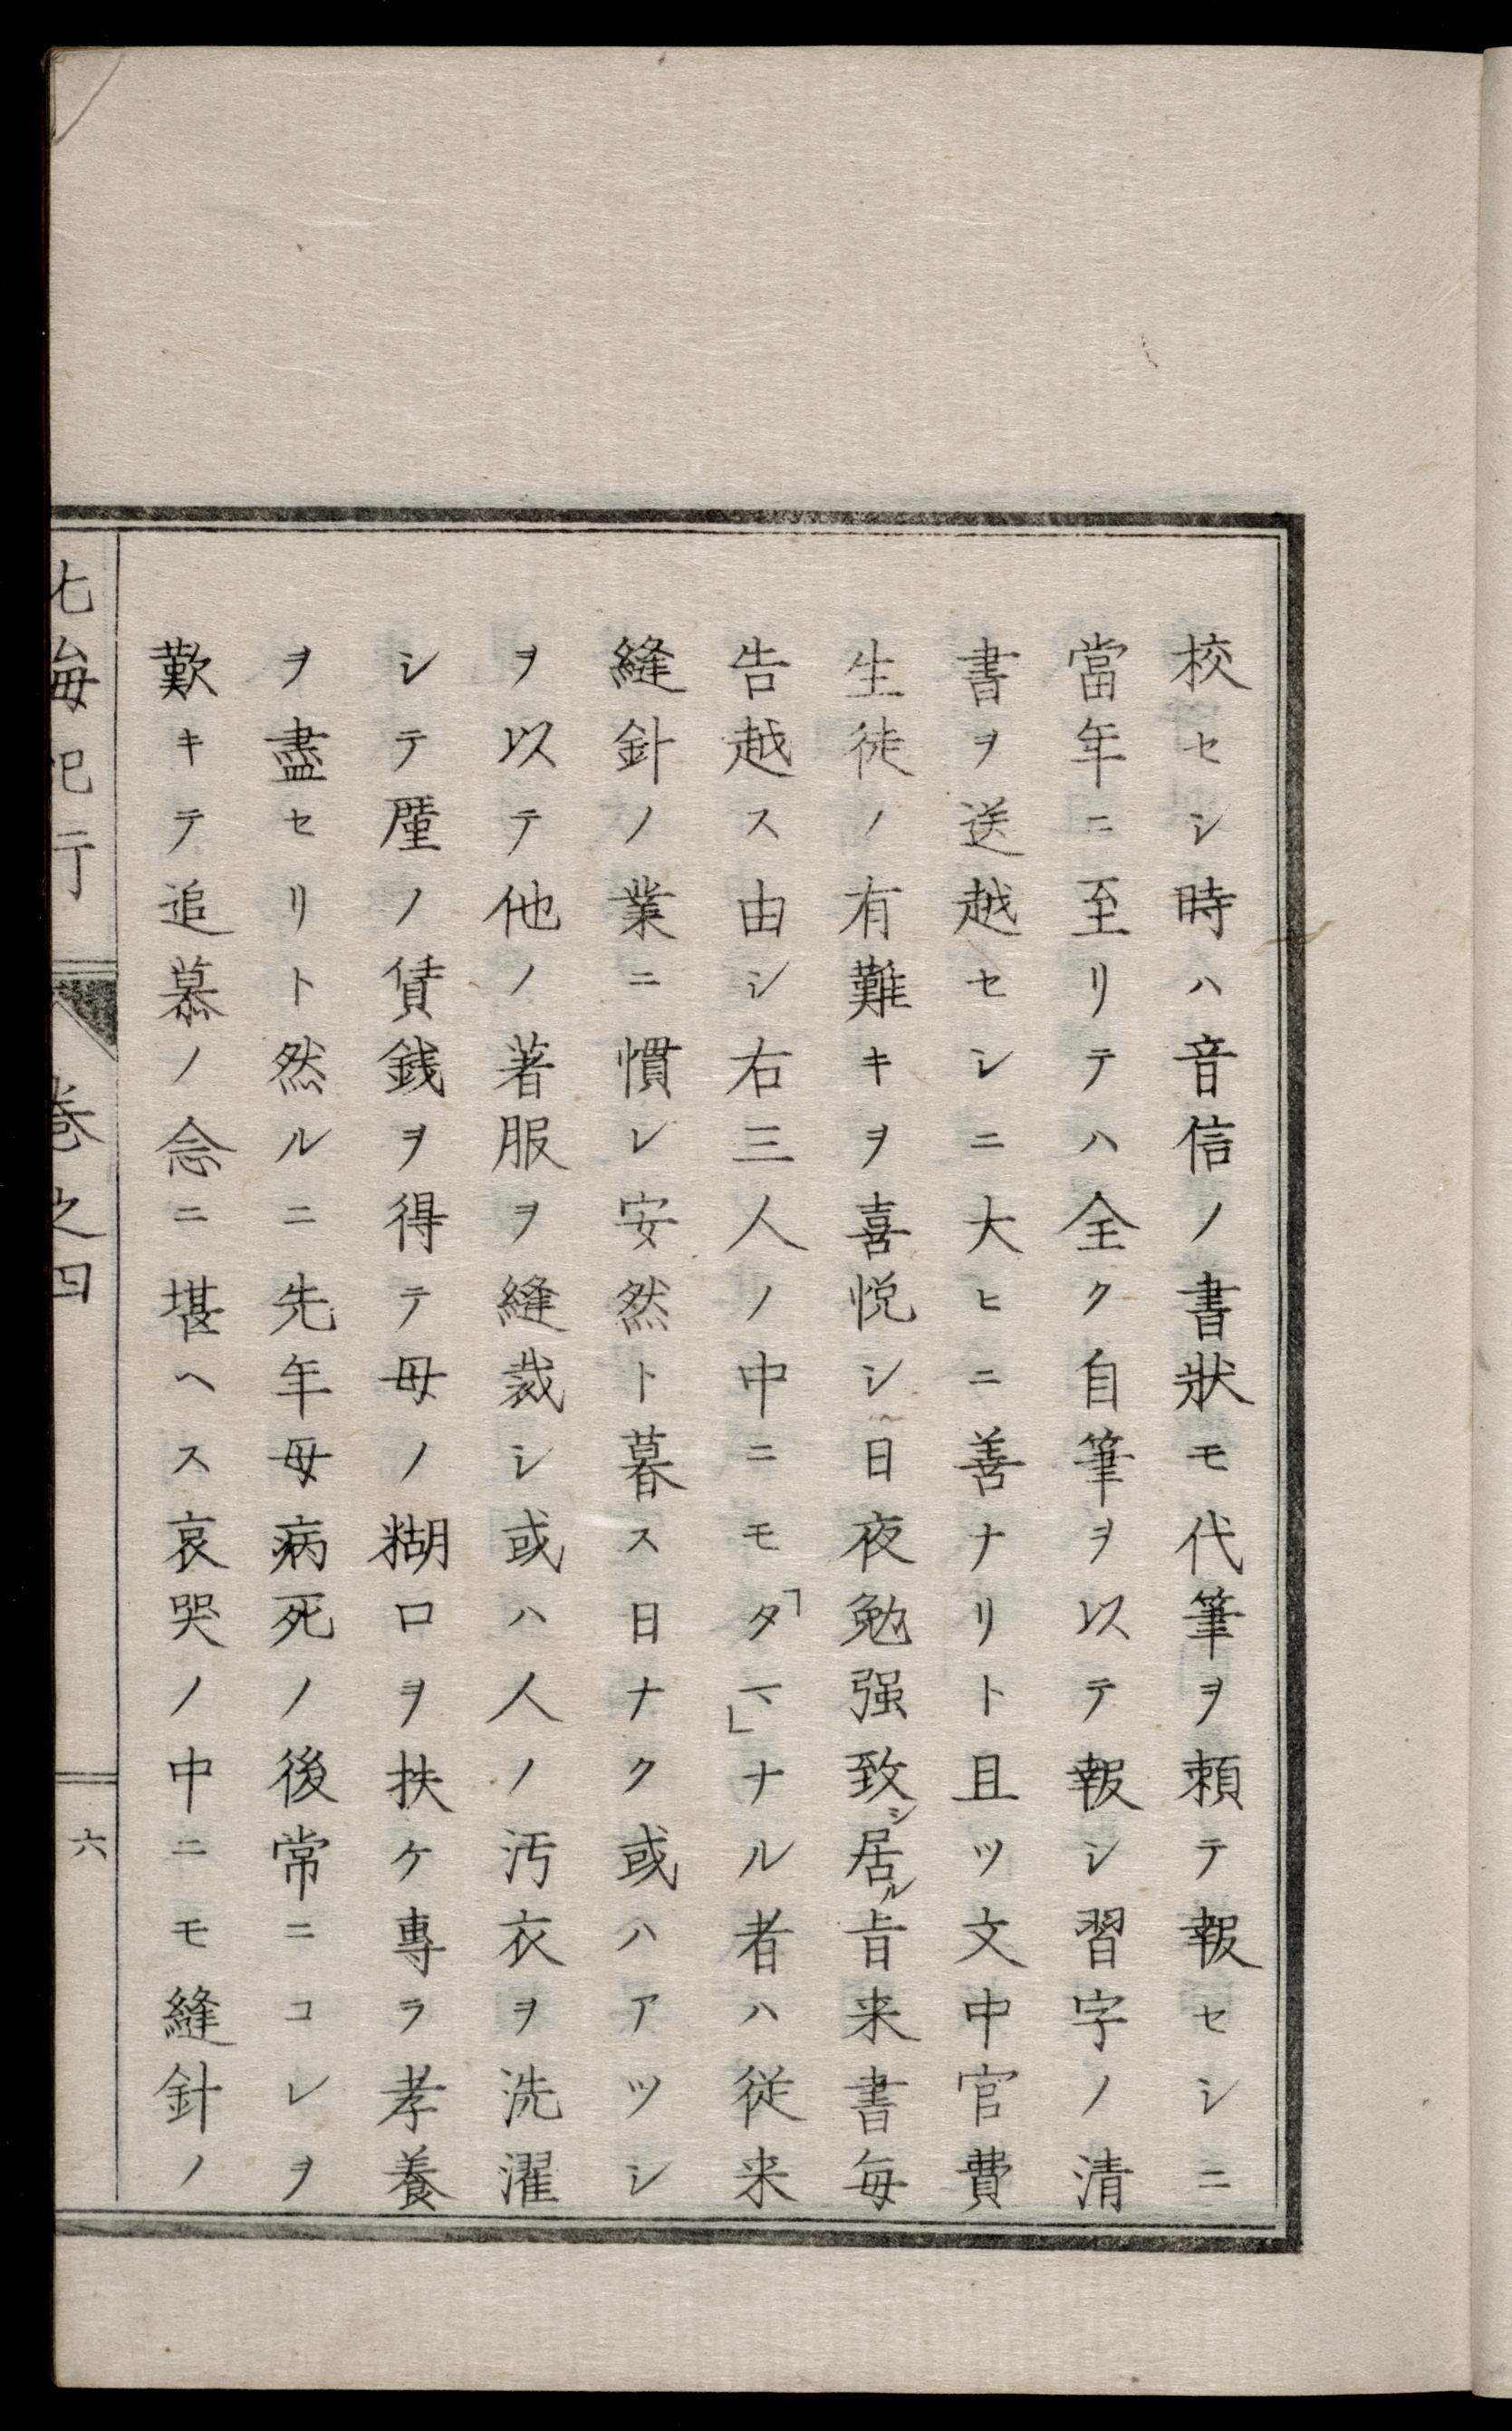 校セシ時ハ音信ノ書狀モ代筆ヲ頼テ報セシニ
當年ニ至リテハ全ク自筆ヲ以テ報シ習字ノ清
書ヲ送越セシニ大ヒニ善ナリト且ツ文中官費
生徒ノ有難キヲ喜悦シ日夜勉强致シ居ル旨来書毎
告越ス由シ右三人ノ中ニモ「タマ」ナル者ハ従来
縫針ノ業ニ慣レ安然ト暮ス日ナク或ハアツシ
ヲ以テ他ノ著服ヲ縫裁シ或ハ人ノ汚衣ヲ洗濯
シテ厘ノ賃銭ヲ得テ母ノ糊口ヲ扶ケ專ラ孝養
ヲ盡セリト然ルニ先年母病死ノ後常ニコレヲ
歎キテ追慕ノ念ニ堪ヘス哀哭ノ中ニモ縫針ノ
北海紀行
巻之四
六